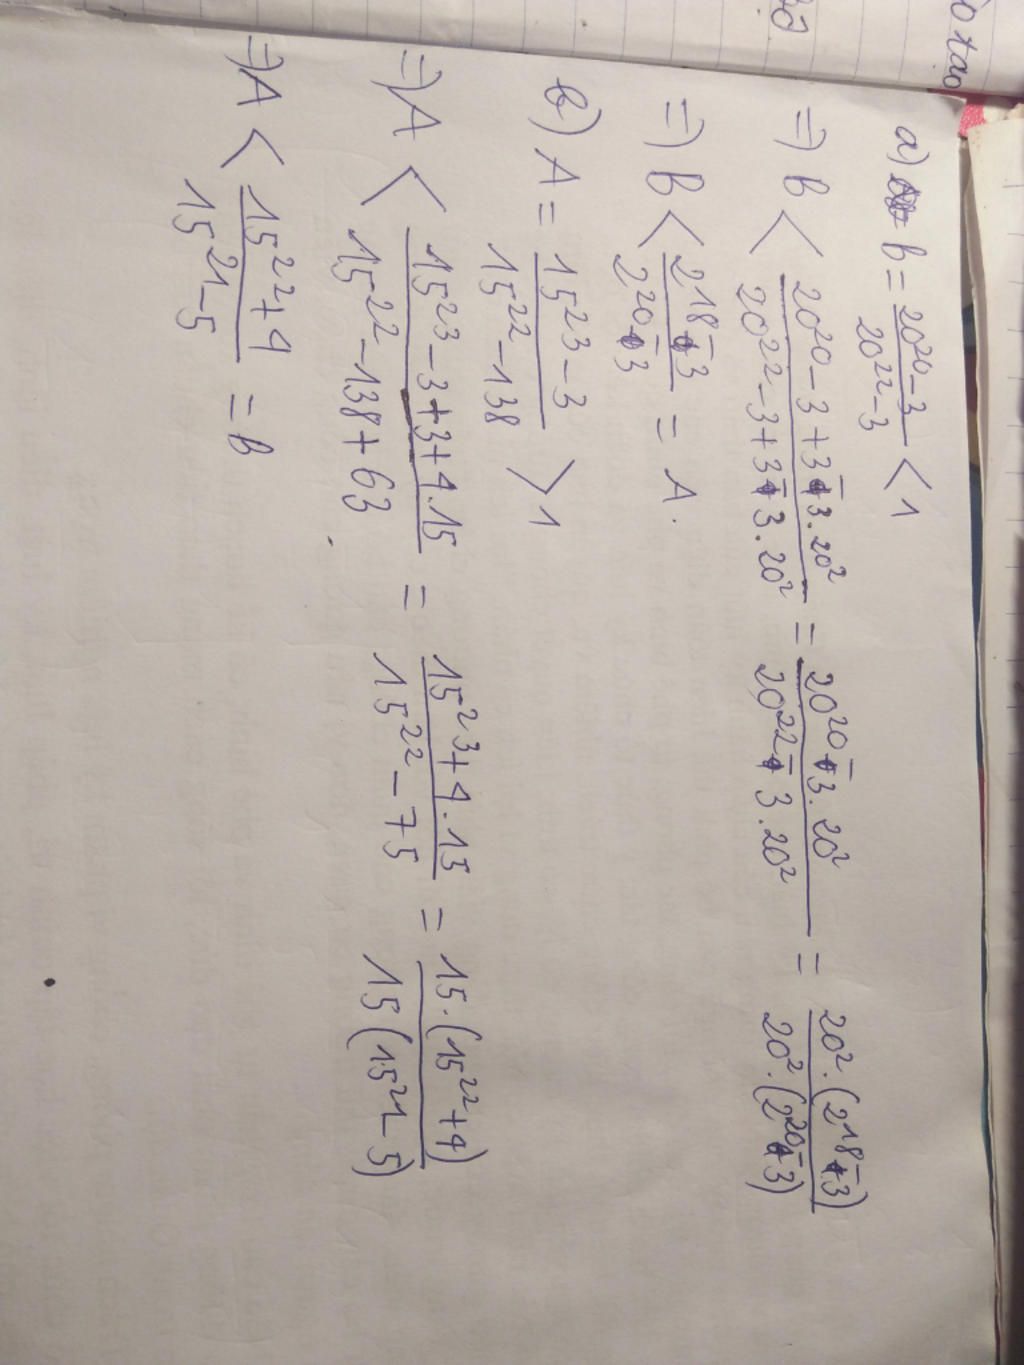 a) B = (20^20 - 3)/(20^22 - 3) < 1
=> B < (20^20 - 3 + 3 - 3.20^2)/(20^22 - 3 + 3 - 3.20^2) = (20^20 - 3.20^2)/(20^22 - 3.20^2) = (20^2.(2^18 - 3))/(20^2.(2^20 - 3))
=> B < (2^18 - 3)/(2^20 - 3) = A.
b) A = (15^23 - 3)/(15^22 - 138) > 1
=> A < (15^23 - 3 + 3 + 4.15)/(15^22 - 138 + 63) = (15^23 + 4.15)/(15^22 - 75) = (15.(15^22 + 4))/(15(15^21 - 5))
=> A < (15^22 + 4)/(15^21 - 5) = B